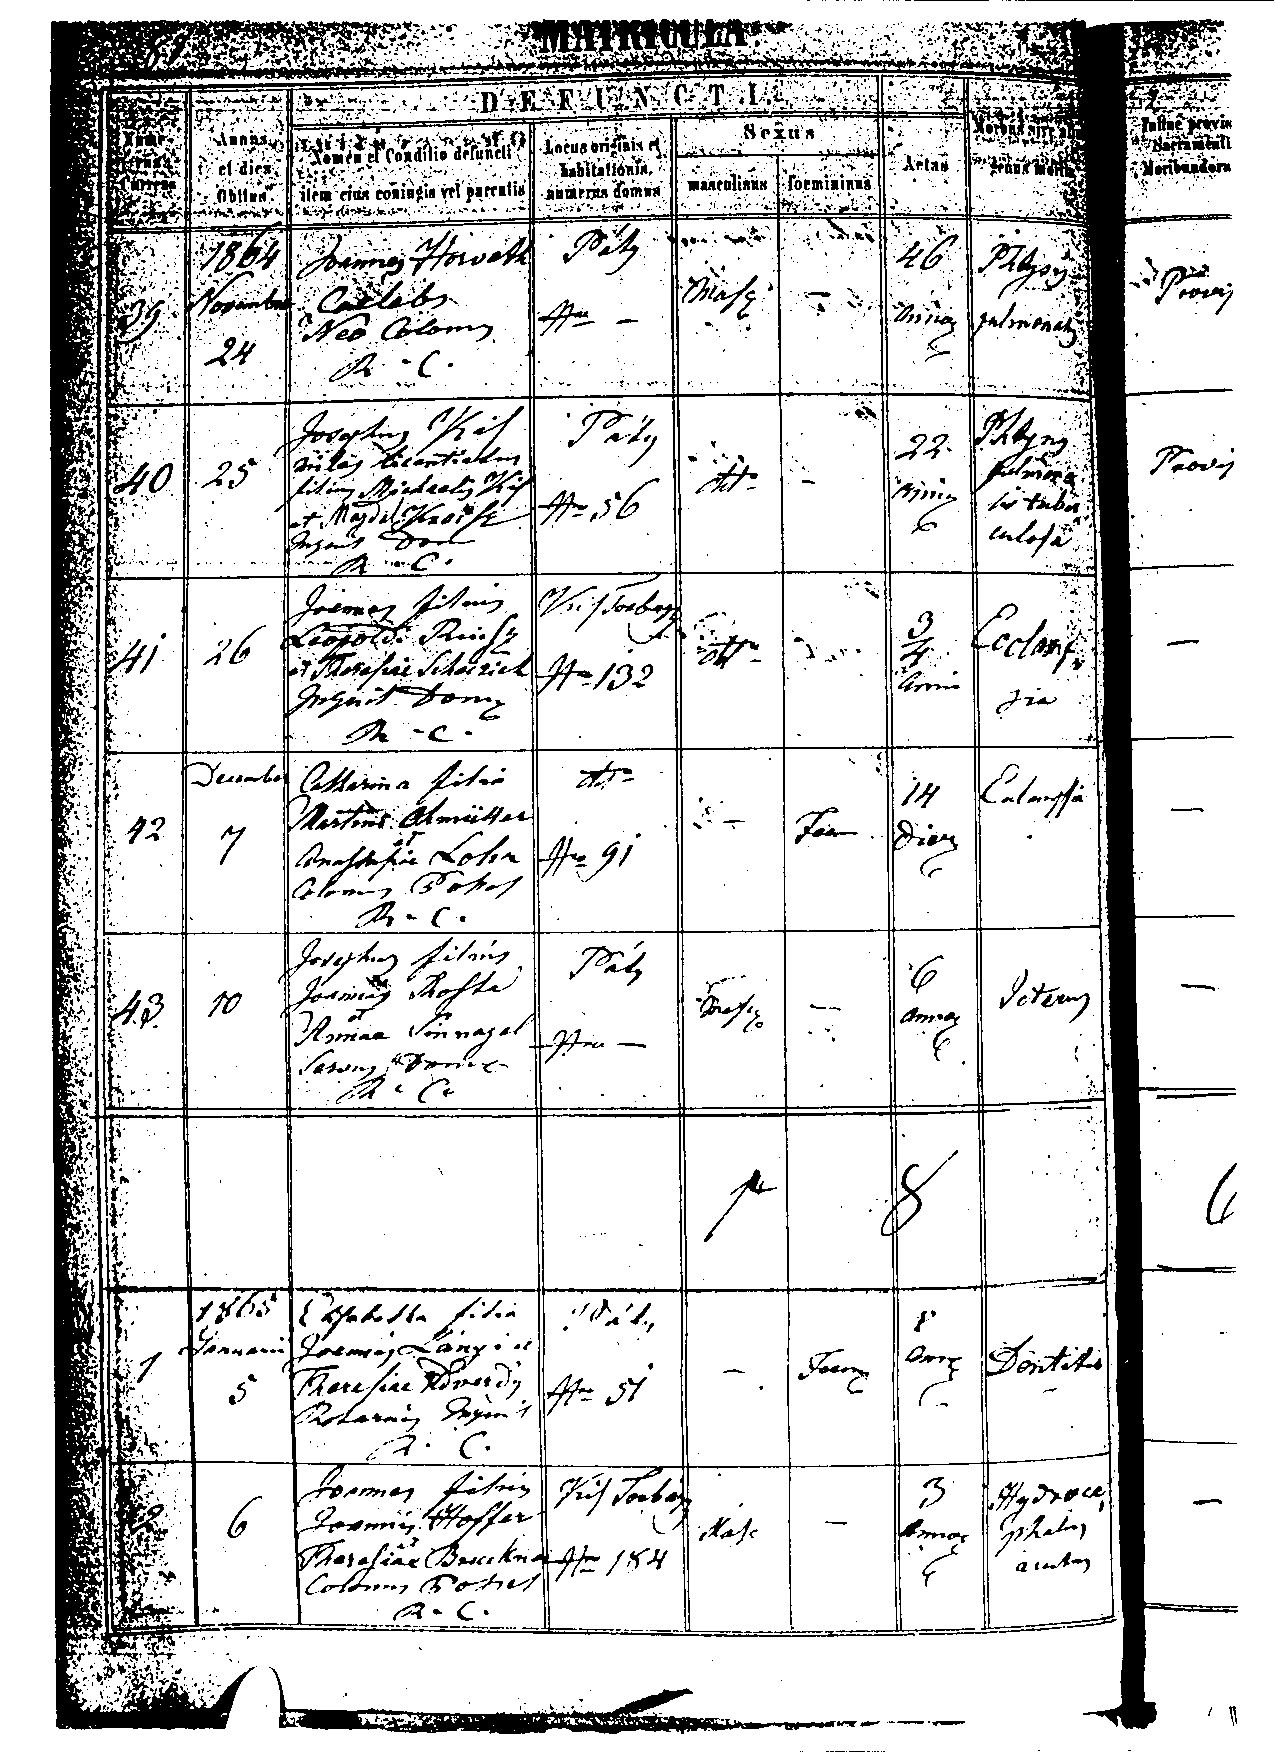 MATRICULA
DEFUNCTI
Numerus Currens
Annus et dies Obitus
Nomen et Conditio defuncti
item ejus conjugis vel parentis
Locus originis et
habitationis,
numerus domus
Sexus
masculinus
foemininus
Aetas
Morbus
genus mortis
Provis
Sacramenti
Moribundora
39
1864
November
24
Joannes Horvath
Caelebs
Neo Colonus
R. C.
Páty
Nro —
Masc
—
46
annor
Phtysis
pulmonalis
Provis
40
25
Josephus Kis
miles licentiatus
filius Michaelis Kis
et Magdal.
Inquil Dom
R. C.
Páty
Nro 56
dtto
-
22
annor
Phtysis
pulmona
lis tuber
culosa
Provis
41
26
Joannes filius
Leopoldi
et Theresiae
Inquil Dom
R. C.
Kis Torbágy
Nro 132
dtto
3/4
anni
Eclamp
sia
—
42
December
7
Catharina filia
Martini
et
Anastasiae Lohn
Colonus
R. C.
dtto
Nro 91
—
Foem
14
dier
Eclampsia
—
43
10
Josephus filius
Joannis Rosta
et
Annae
Dom
R. C.
Páty
Nro —
Masc
—
6
annor
Icterus
—
8
6
1
1865
Januarii
5
Elisabetha filia
Joannis Lángi et
Theresiae
R. C.
Páty
Nro 51
—
Foem
Dentitio
2
6
Joannes filius
Joannis Hoffer
et
Theresiae Bruckner
Colonus
R. C.
Kis Torbágy
Nro 184
Masc
—
3
annor
Hydroce
phalus
acutus
—